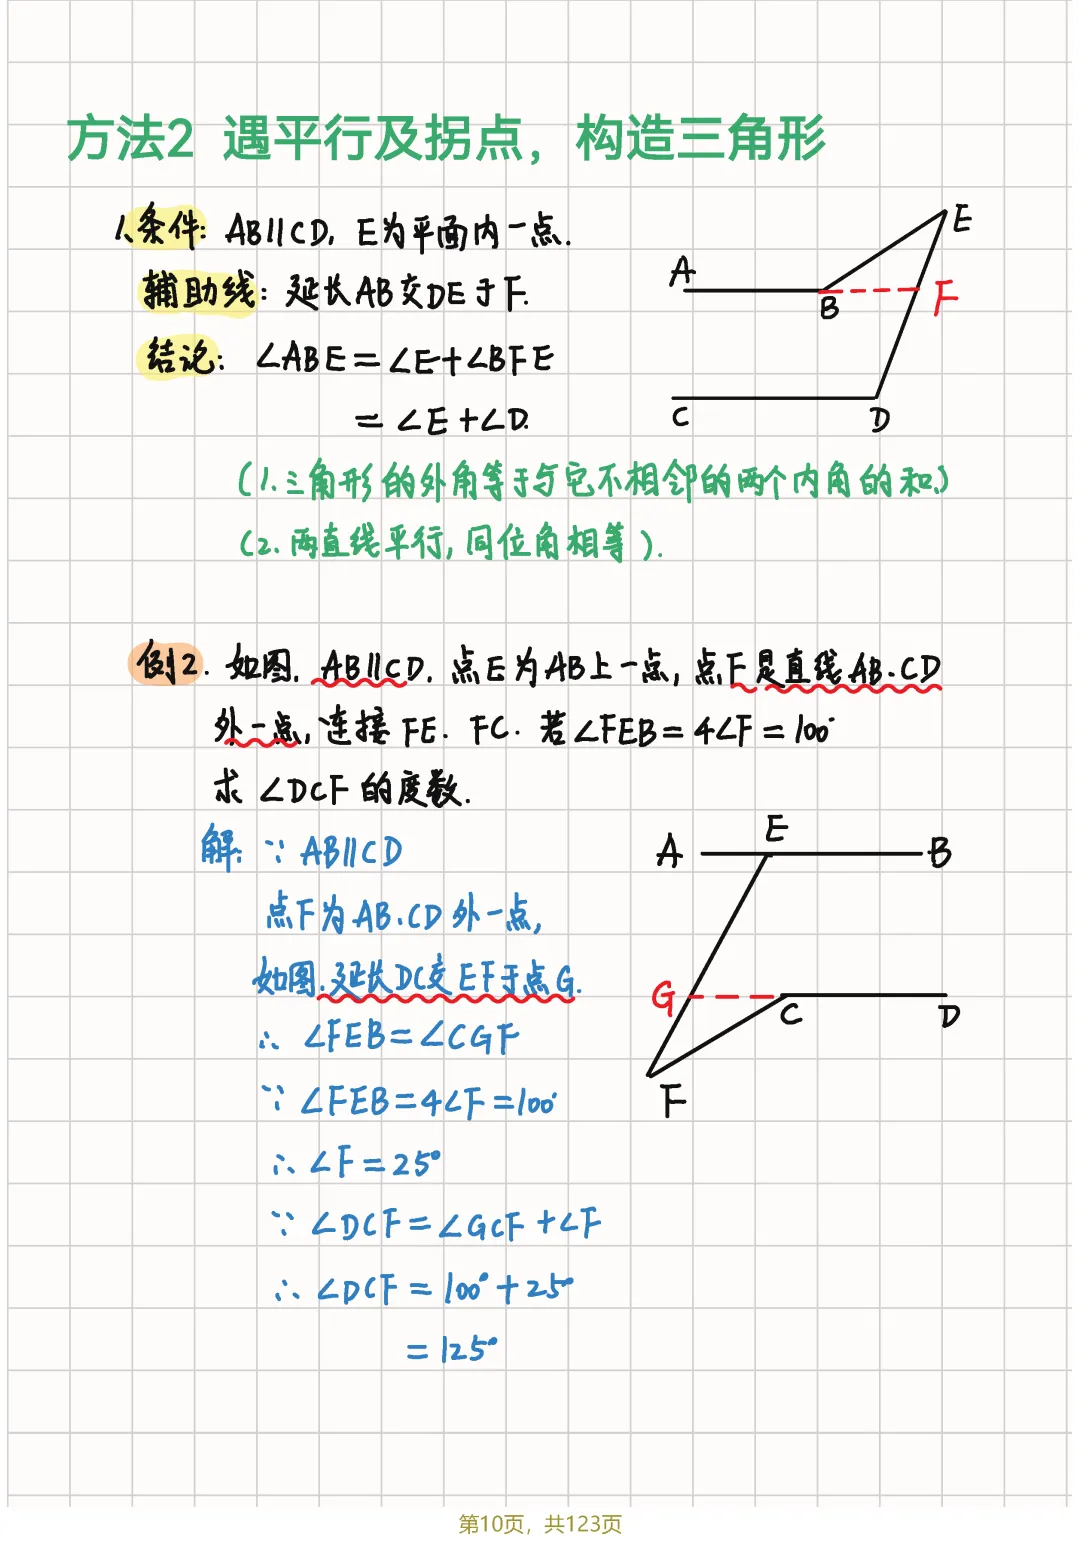 方法2 遇平行及拐点，构造三角形
1、条件: AB∥CD, E为平面内一点.
辅助线: 延长AB交DE于F.
结论: ∠ABE=∠E+∠BFE
=∠E+∠D.
(1.三角形的外角等于与它不相邻的两个内角的和.)
(2.两直线平行, 同位角相等).
E
A
B
F
C
D
例2. 如图, AB∥CD, 点E为AB上一点, 点F是直线AB.CD
外一点, 连接FE. FC. 若∠FEB=4∠F=100°
求∠DCF的度数.
解: ∵AB∥CD
点F为AB.CD外一点,
如图.延长DC交EF于点G.
∴ ∠FEB=∠CGF
∵ ∠FEB=4∠F=100°
∴ ∠F=25°
∵ ∠DCF=∠GCF+∠F
∴ ∠DCF=100°+25°
=125°
A
E
B
G
C
D
F
第10页，共123页